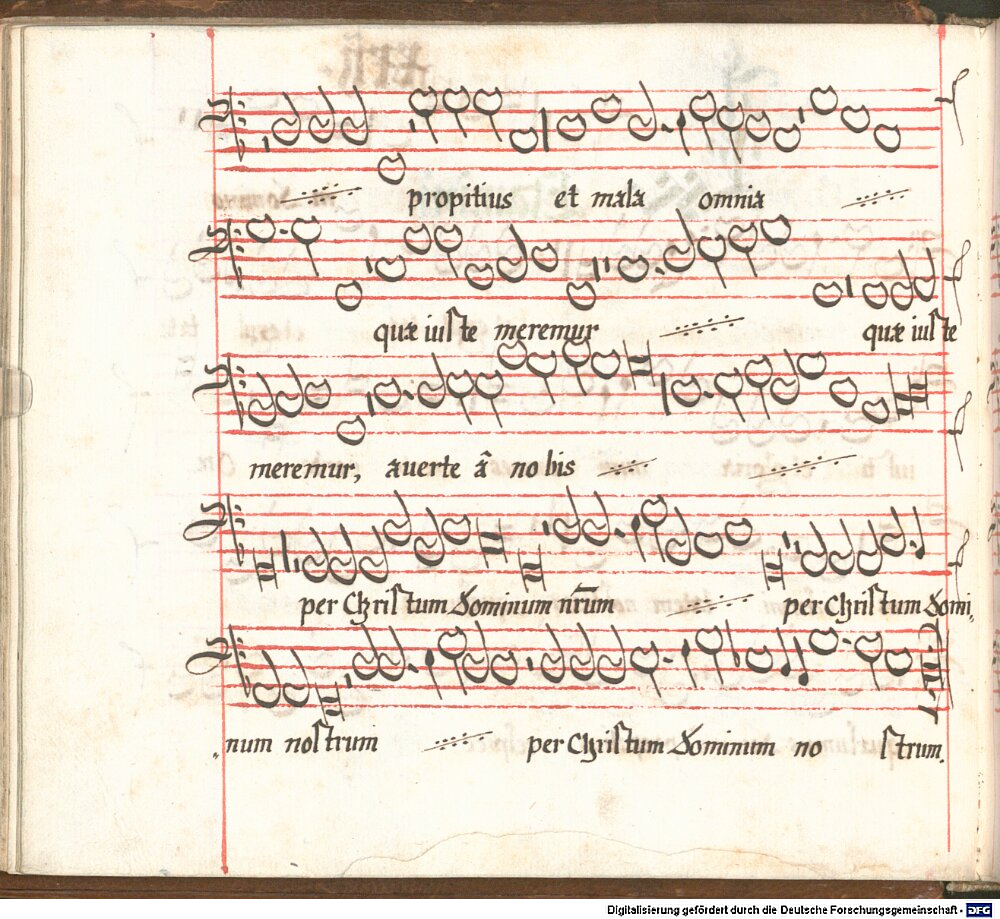 propitius et mala omnia
quæ iuſte meremur quæ iuſte
meremur, auerte â nobis
per Chriſtum Dominum nr̄um per Chriſtum Domi„
„num noſtrum per Chriſtum Dominum no ſtrum.
Digitalisierung gefördert durch die Deutsche Forschungsgemeinschaft - DFG